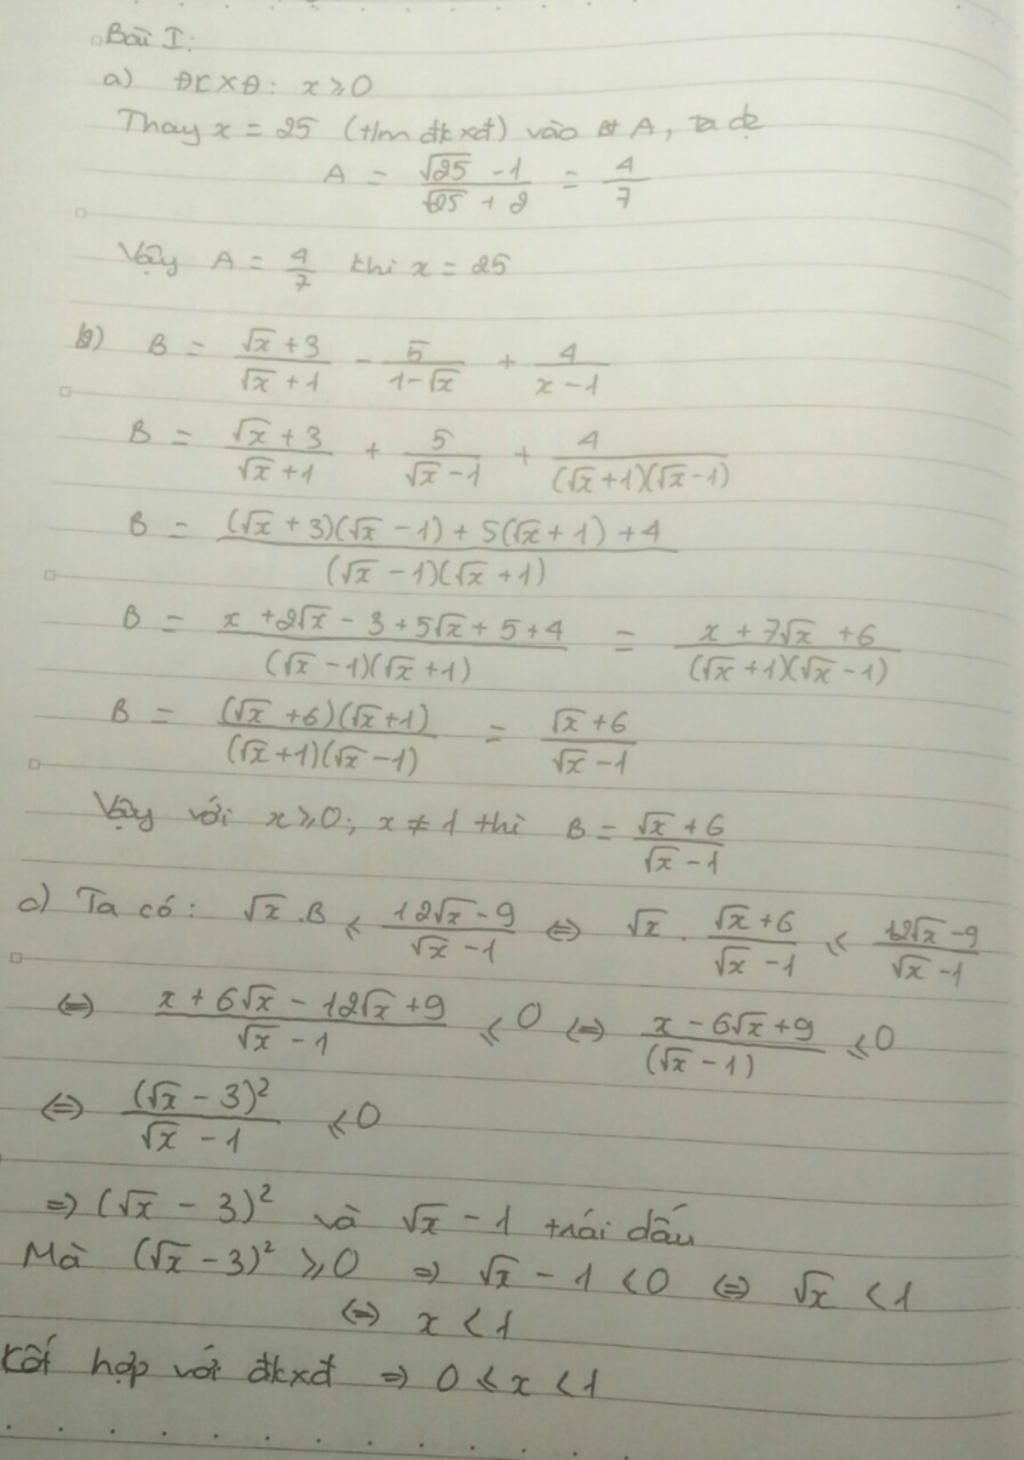 Bài I:
a) ĐKXĐ: x ≥ 0
Thay x = 25 (t/m đkxđ) vào bt A, ta đc
A = (√25 - 1)/(√25 + 2) = 4/7
Vậy A = 4/7 khi x = 25
b) B = (√x + 3)/(√x + 1) - 5/(1 - √x) + 4/(x - 1)
B = (√x + 3)/(√x + 1) + 5/(√x - 1) + 4/((√x + 1)(√x - 1))
B = ((√x + 3)(√x - 1) + 5(√x + 1) + 4)/((√x - 1)(√x + 1))
B = (x + 2√x - 3 + 5√x + 5 + 4)/((√x - 1)(√x + 1)) = (x + 7√x + 6)/((√x + 1)(√x - 1))
B = ((√x + 6)(√x + 1))/((√x + 1)(√x - 1)) = (√x + 6)/(√x - 1)
Vậy với x ≥ 0; x ≠ 1 thì B = (√x + 6)/(√x - 1)
c) Ta có: √x . B ≤ (12√x - 9)/(√x - 1) ⇔ √x . (√x + 6)/(√x - 1) ≤ (12√x - 9)/(√x - 1)
⇔ (x + 6√x - 12√x + 9)/(√x - 1) ≤ 0 ⇔ (x - 6√x + 9)/((√x - 1)) ≤ 0
⇔ (√x - 3)²/(√x - 1) ≤ 0
⇒ (√x - 3)² và √x - 1 trái dấu
Mà (√x - 3)² ≥ 0 ⇒ √x - 1 < 0 ⇔ √x < 1
⇔ x < 1
Kết hợp với đkxđ ⇒ 0 ≤ x < 1